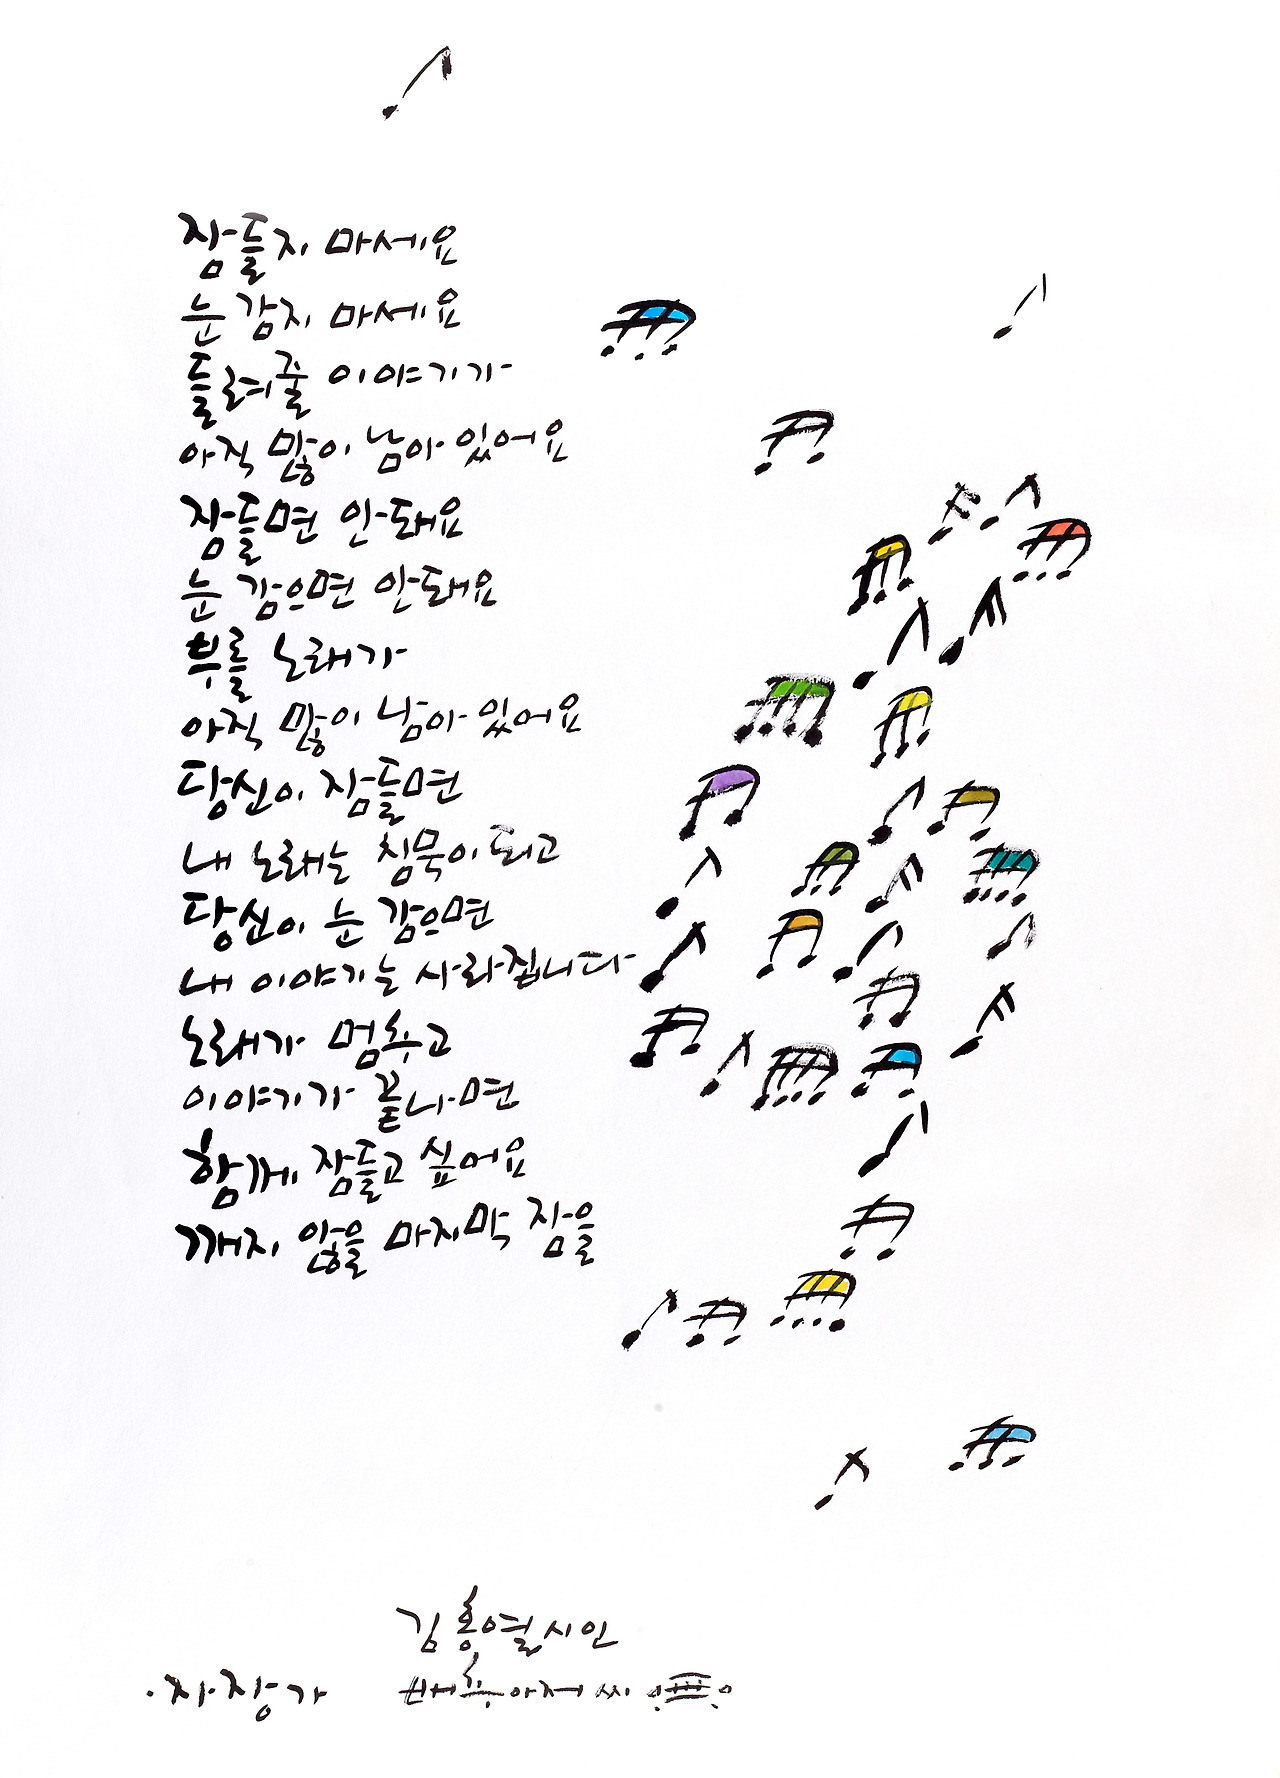 잠들지 마세요
눈 감지 마세요
들려줄 이야기가
아직 많이 남아 있어요
잠들면 안돼요
눈 감으면 안돼요
부를 노래가
아직 많이 남아 있어요
당신이 잠들면
내 노래는 침묵이 되고
당신이 눈 감으면
내 이야기는 사라집니다
노래가 멈추고
이야기가 끝나면
함께 잠들고 싶어요
깨지 않을 마지막 잠을
김홍열시인
·자장가 배추아저씨